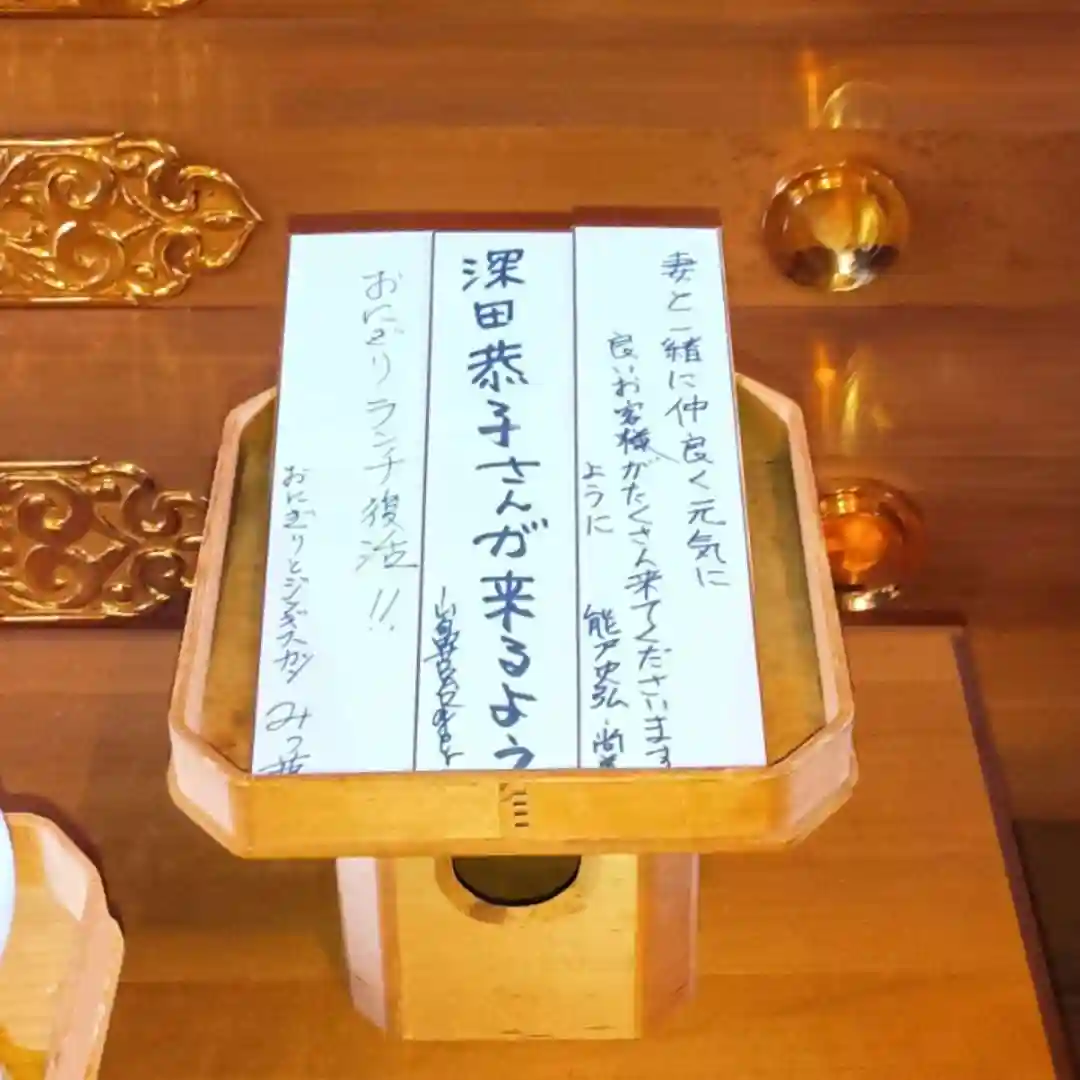 妻と一緒に仲良く元気に
良いお客様がたくさん来てくださいます
ように
能戸史弘・尚美
深田恭子さんが来るよう
おにぎりランチ復活!!
おにぎりとジンギスカン
みつ